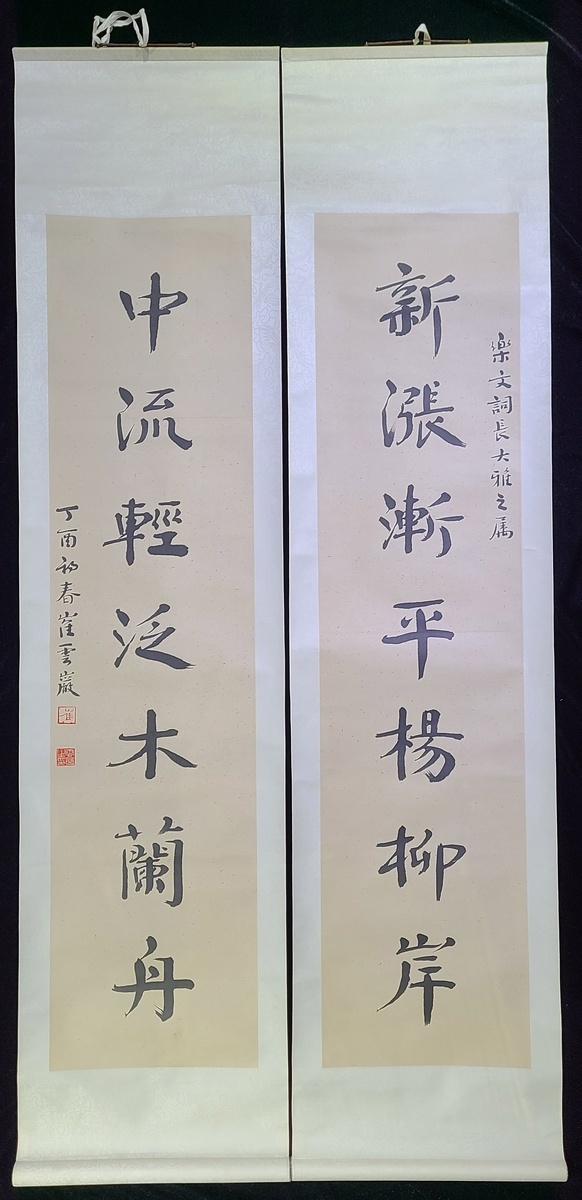 樂文詞長大雅之属
新漲漸平楊柳岸
中流輕泛木蘭舟
丁酉初春崔雲巖
崔